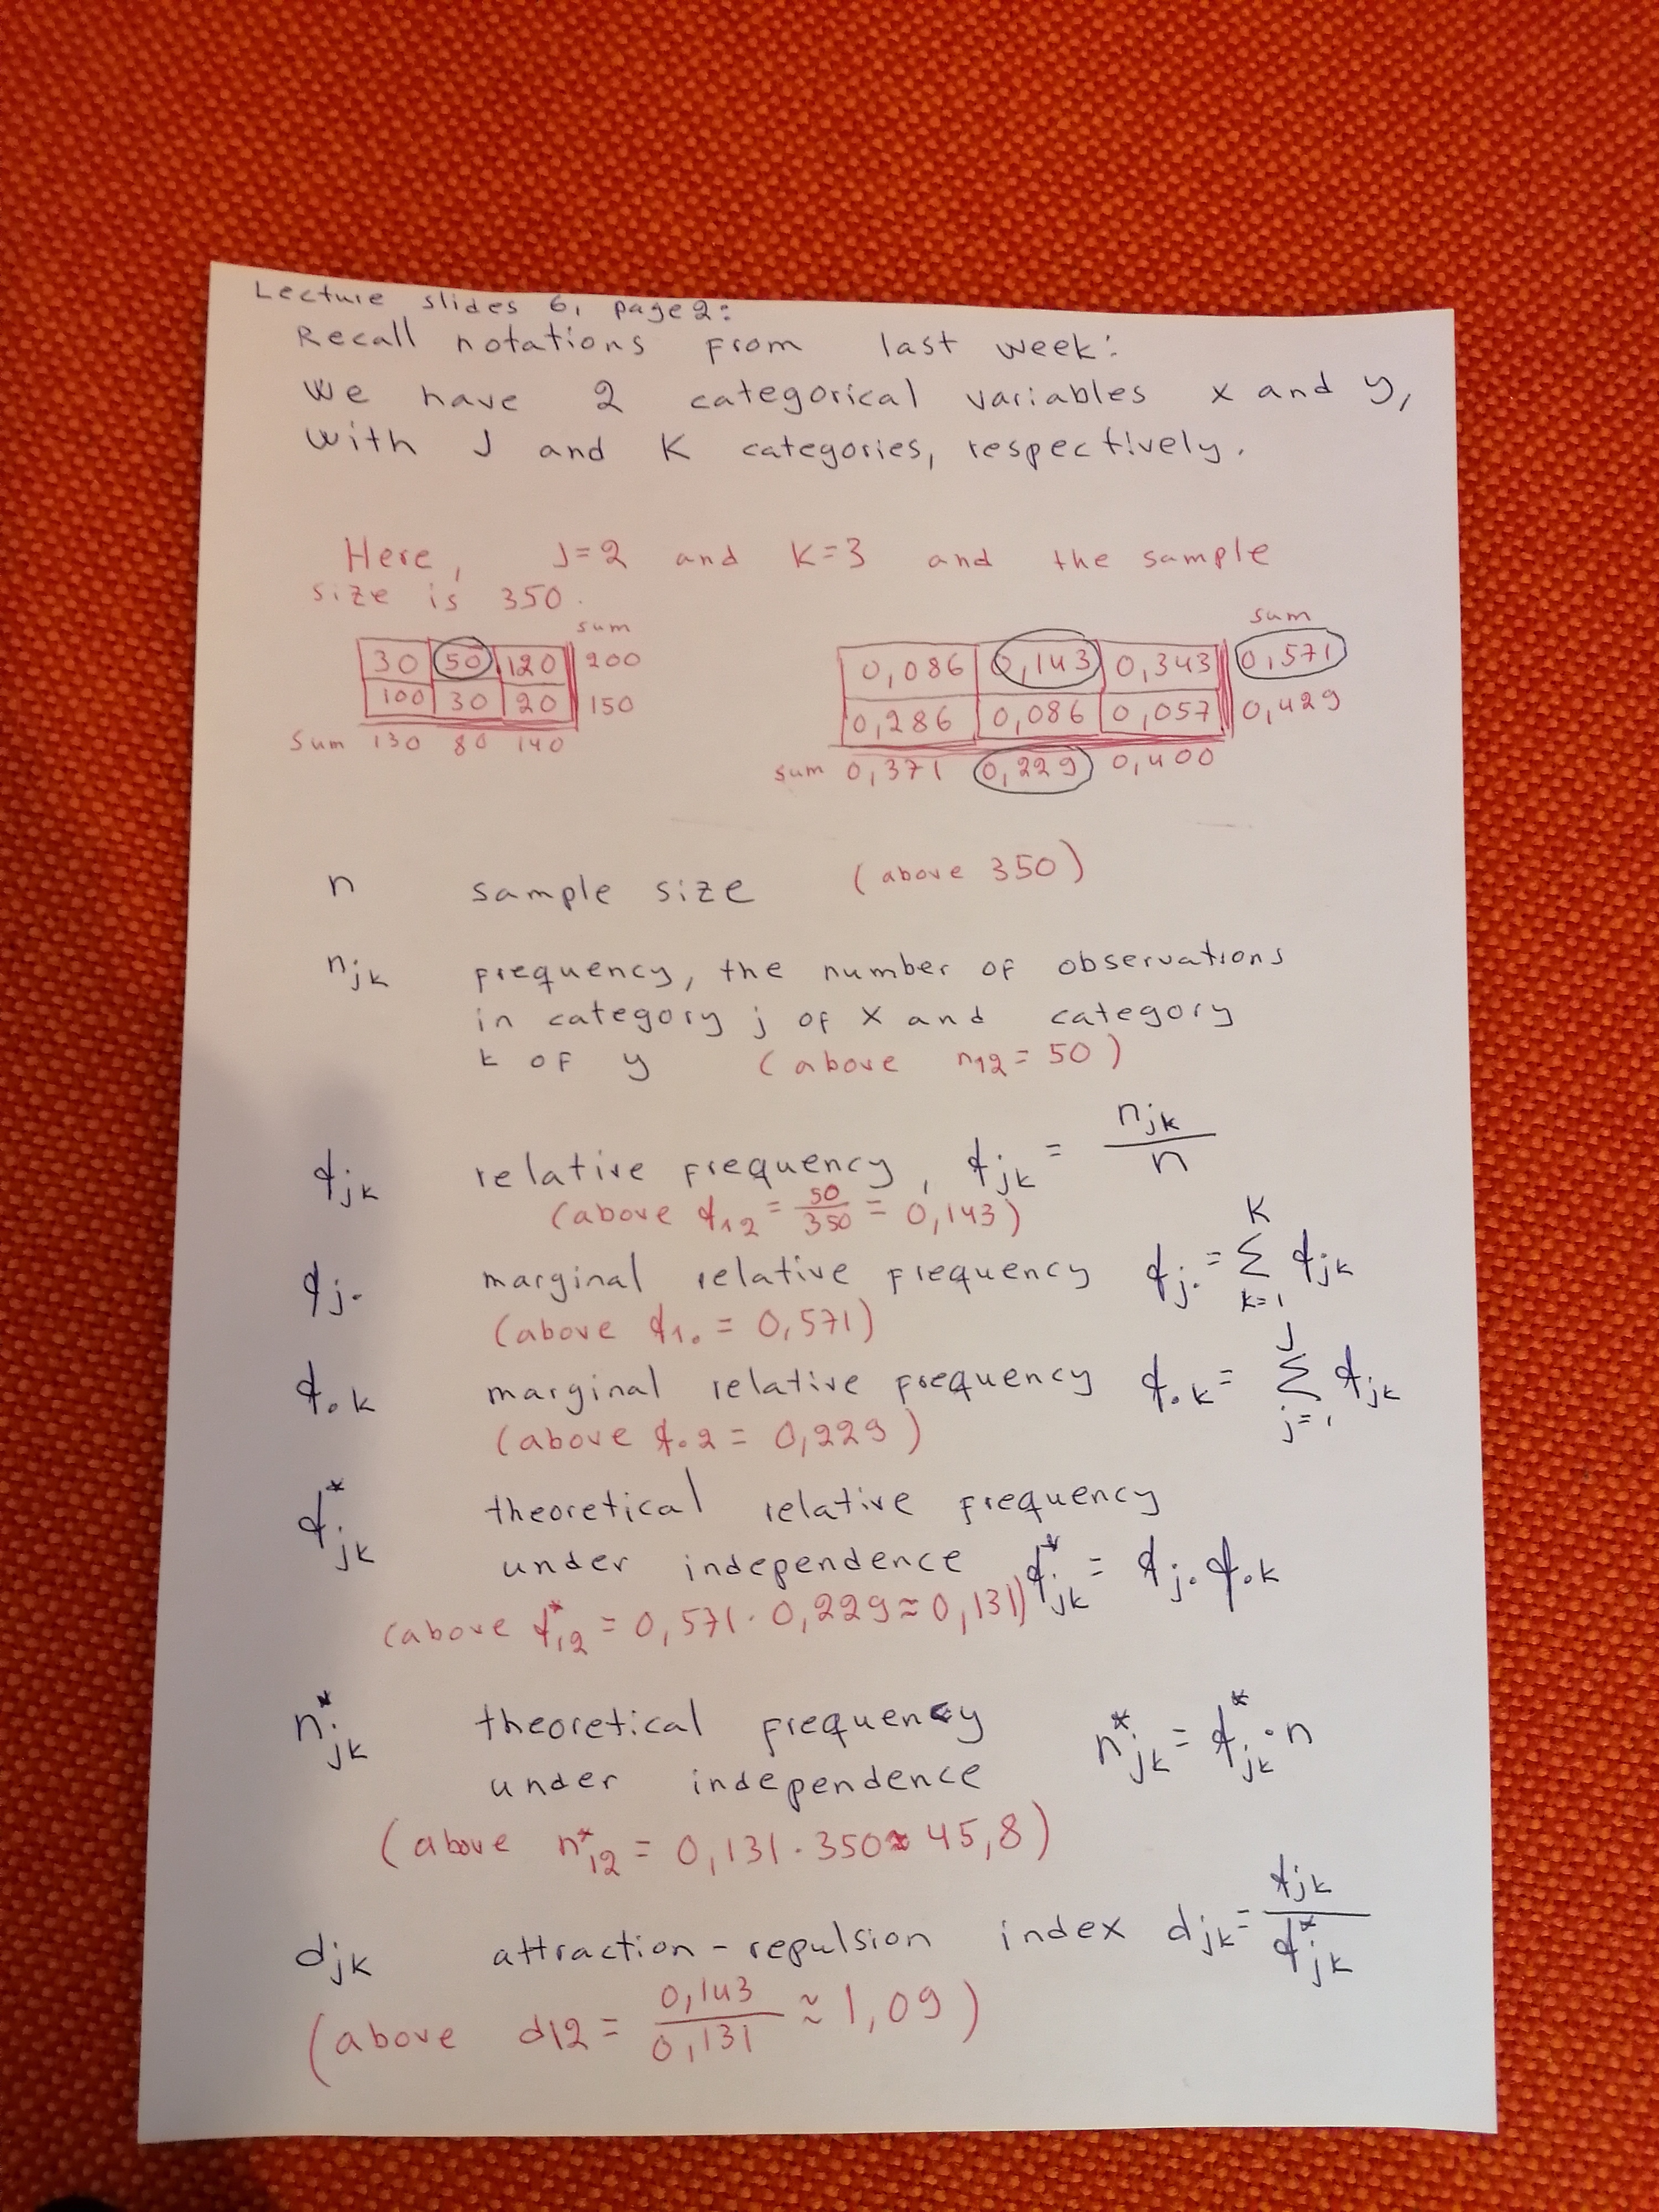 Lecture slides 6, page 2:
Recall notations from last week:
We have 2 categorical variables x and y,
with J and K categories, respectively.
Here, J=2 and K=3 and the sample
size is 350.
sum
30 50 120 200
100 30 20 150
Sum 130 80 140
sum
0,086 0,143 0,343 0,571
0,286 0,086 0,057 0,429
sum 0,371 0,229 0,400
n sample size (above 350)
n_jk frequency, the number of observations
in category j of x and category
k of y (above n_12 = 50)
f_jk relative frequency, f_jk = n_jk / n
(above f_12 = 50/350 = 0,143)
f_j. marginal relative frequency f_j. = Σ_{k=1}^{K} f_jk
(above f_1. = 0,571)
f_.k marginal relative frequency f_.k = Σ_{j=1}^{J} f_jk
(above f_.2 = 0,229)
f*_jk theoretical relative frequency
under independence f*_jk = f_j. f_.k
(above f*_12 = 0,571 · 0,229 ≈ 0,131)
n*_jk theoretical frequency n*_jk = f*_jk · n
under independence
(above n*_12 = 0,131 · 350 ≈ 45,8)
d_jk attraction-repulsion index d_jk = f_jk / f*_jk
(above d_12 = 0,143/0,131 ≈ 1,09)